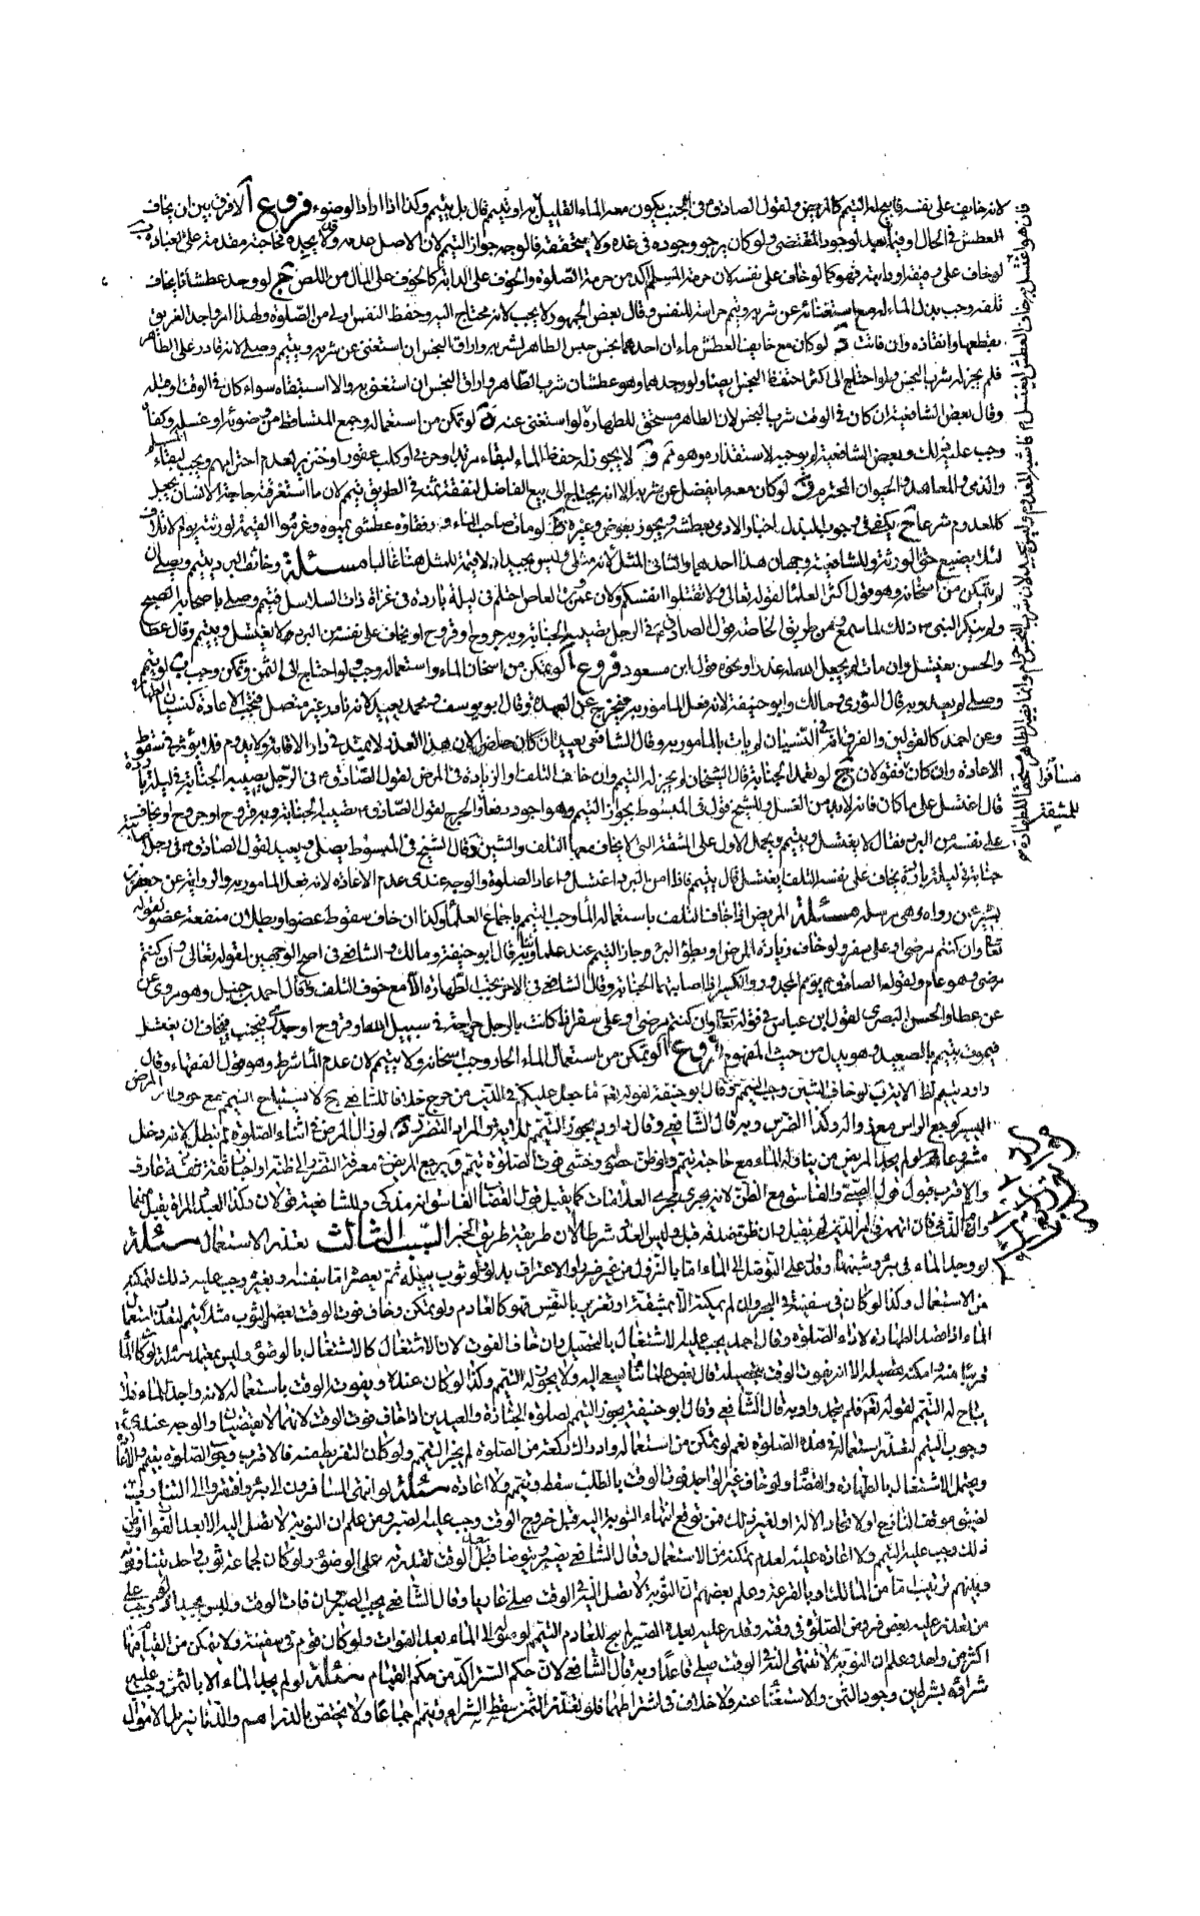 لانه خايف على نفسه فابيح له التيمم كالمريض ولقول الصادق ع في الجنب يكون معه الماء القليل يتيمم قال بل يتيمم وكذا اذا اراد الوضوء فروع آ لا فرق بين ان يخاف
العطش في الحال او فيما بعد لوجود المقتضى ولو كان يرجو وجوده في غده ولا يتحققه فالوجه جواز التيمم لان الاصل عدمه وقد لا يجده فحاجته مقدمة على العبادة ب
لو خاف على رفيقه او دابته فهو كما لو خاف على نفسه لان حرمة المسلم آكد من حرمة الصلوة والخوف على الدابة كالخوف على المال من اللص ج لو وجد عطشانا يخاف
تلفه وجب بذل الماء له مع استغنائه عن شربه ويتيمم حراسة للنفس وقال بعض الجمهور لا يجب لانه محتاج اليه وحفظ النفس اولى من الصلوة ولهذا لو واجد الغريق
يقطعها وانقاذه وان فاتت د لو كان مع خايف العطش ماءان احدهما نجس حبس الطاهر لشربه واراق النجس ان استغنى عن شربه ويتيمم وصلى لانه قادر على الطاهر
فلم يجز له شرب النجس ولو احتاج الى اكثر احتفظ النجس ايضا ولو وجدهما وهو عطشان شرب الطاهر واراق النجس ان استغنى به والا استبقاه سواء كان في الوقت او قبله
وقال بعض الشافعية ان كان في الوقت شرب النجس لان الطاهر مستحق للطهارة لو استغنى عنه ه لو تمكن من استعماله وجمع المتساقط من وضوئه او غسله وكفاه
وجب عليه ذلك وبعض الشافعية لم يوجبه لاستقذاره وهو ثم و لا يجوز له حفظ الماء لبقاء مرتد او حربى او كلب عقور او خنزير لعدم احترامهم ويجب لبقاء المسلم
والذمى والمعاهد والحيوان المحترم ز لو كان معه ما يفضل عن شربه الا انه يحتاج الى بيع الفاضل لنفقة ثمنه في الطريق تيمم لان ما استغرقته حاجة الانسان يجعل
كالمعدوم شرعا ح يكفى في وجوب البذل اخبار الادمى بعطشه ويجوز بعوض وغيره ط لو مات صاحب الماء ورفقاؤه عطشى يمموه وغرموا القيمة لورثته يوم الاتلاف
لئلا يضيع حق الورثة وللشافعية وجهان هذا احدهما والثانى المثل لانه مثلى وليس بجيد اذ لا قيمة للمثل هنا غالبا مسئلة وخائف البرد يتيمم ويصلى ان
لم يتمكن من اسخانه وهو قول اكثر العلماء لقوله تعالى ولا تقتلوا انفسكم ولان عمرو بن العاص احتلم في ليلة باردة في غزاة ذات السلاسل فتيمم وصلى باصحابه الصبح
ولم ينكر النبى ص ذلك لما سمع ومن طريق الخاصة قول الصادق ع في الرجل تصيبه الجنابة وبه جروح او قروح او يخاف على نفسه من البرد لا يغتسل ويتيمم وقال عطا
والحسن يغتسل وان مات لم يجعل الله له عذرا ونحوه قول ابن مسعود فروع آ لو تمكن من اسخان الماء واستعماله وجب ولو احتاج الى الثمن وتمكن وجب ب لو تيمم
وصلى لم يعد وبه قال الثورى ومالك وابو حنيفة لانه فعل المامور به فيخرج عن العهدة وقال ابو يوسف ومحمد يعيد لانه نادر غير متصل فيجب الاعادة كنسيان الطهارة
وعن احمد كالقولين والفرق انه في النسيان لم يات بالمامور به وقال الشافعى يعيد ان كان حاضرا لان هذا العذر لا يمتد في دار الاقامة ولا يدوم فلا يؤثر في سقوط
الاعادة وان كان مسافرا فقولان ج لو تعمد الجنابة قال الشيخان لم يجز له التيمم وان خاف التلف او الزيادة في المرض لقول الصادق ع في الرجل يصيبه الجنابة في ليلة باردة
قال اغتسل على ما كان فانه لا بد من الغسل وللشيخ قول في المبسوط بجواز التيمم وهو اجود دفعا للحرج لقول الصادق ع تصيبه الجنابة وبه قروح او جروح او يخاف
على نفسه من البرد فقال لا يغتسل ويتيمم ويحمل الاول على المشقة التى لا يخاف معها التلف والشين د قال الشيخ في المبسوط يصلى ويعيد لقول الصادق ع في رجل اصابته
جنابة في ليلة باردة يخاف على نفسه التلف ان يغتسل قال يتيمم فاذا امن البرد اغتسل واعاد الصلوة والوجه عندى عدم الاعادة لانه فعل المامور به والرواية عن جعفر بن
بشير عمن رواه وهى مرسلة مسئلة المريض اذا خاف التلف باستعماله الماء وجب التيمم باجماع العلماء وكذا ان خاف سقوط عضو او بطلان منفعة عضو لقوله
تعالى وان كنتم مرضى او على سفر ولو خاف زيادة المرض او بطؤ البرء جاز التيمم عند علمائنا وبه قال ابو حنيفة ومالك والشافعى في اصح الوجهين لقوله تعالى وان كنتم
مرضى وهو عام ولقوله الصادق ع يؤمم المجدور والكسير اذا اصابتهما الجنابة وقال الشافعى في الاخر يجب الطهارة الا مع خوف التلف وقال احمد بن حنبل وهو مروى عن
عن عطاء والحسن البصرى لقول ابن عباس في قوله تعالى وان كنتم مرضى او على سفر اذا كانت بالرجل جراحة في سبيل الله او قروح او جدرى فيجنب فيخاف ان يغتسل
فيموت يتيمم بالصعيد وهو يدل من حيث المفهوم فروع آ لو تمكن من استعمال الماء الحار وجب اسخانه ولا يتيمم لان عدم الماء شرط وهو قول الفقهاء وقال
داود يتيمم لظاهر الاية ب لو خاف الشين وجب التيمم وقال ابو حنيفة لقوله تعالى ما جعل عليكم في الدين من حرج خلافا للشافعى ج لا يستباح التيمم مع خوف المرض
اليسير كوجع الراس مع زواله وكذا الضرس وبه قال الشافعى وقال داود يجوز التيمم للاية والمراد التضرر د لو زال المرض في اثناء الصلوة لم تبطل لانه دخل
مشروعا ه لو لم يجد المريض من يناوله الماء مع حاجته تيمم ولو ظن حضوره وخشى فوت الصلوة تيمم و يرجع المريض في معرفة التضرر الى ظنه او اخبار ثقة عارف
والاقرب قبول قول الصبى والفاسق مع الظن لانه يجرى مجرى العلامات كما يقبل قول القصاب الفاسق انه مذكى وللشافعية قولان وكذا العبد والمراة يقبل منهما
واما الذمى فان اتهمه في امر الدين لم يقبل وان ظن صدقه قبل وليس العدد شرطا لان طريقه طريق الخبر السبب الثالث تعذر الاستعمال مسئلة
لو وجد الماء في بئر وشبهها وقدر على التوصل الى الماء اما بالنزول من غير ضرر او الاعتراف بدلو او ثوب يبله ثم يعصره اما بنفسه او بغيره وجب عليه ذلك لتمكنه
من الاستعمال وكذا لو كان في سفينة في البحر وان لم يمكنه الا بمشقة او تغرير بالنفس فهو كالعادم ولو تمكن وخاف فوت الوقت بعصر الثوب مثلا تيمم لتعذر استعمال
الماء اذ القصد الطهارة لاداء الصلوة وقال احمد يجب عليه الاشتغال بالتحصيل وان خاف الفوت لان الاشتغال كالاشتغال بالوضوء وليس بمعتمد مسئلة لو كان الماء
قريبا منه وامكنه تحصيله الا انه يفوت الوقت بتحصيله قال بعض علمائنا يسعى اليه ولا يجوز له التيمم وكذا لو كان عنده ويفوت الوقت باستعماله لانه واجد للماء فلا
يباح له التيمم لقوله تعالى فلم تجدوا وبه قال الشافعى وقال ابو حنيفة يجوز التيمم لصلوة الجنازة والعيدين اذا خاف فوت الوقت لانهما لا يقضيان والوجه عندى
وجوب التيمم لتعذر استعماله في هذه الصلوة نعم لو تمكن من استعماله وادراك ركعة من الصلوة لم يجز التيمم ولو كان التفريط منه فالاقرب وجوب الصلوة بتيمم والاعادة
ويحتمل الاشتغال بالطهارة والقضاء ولو خاف غير الواجد فوت الوقت بالطلب سقط وتيمم ولا اعادة مسئلة لو انتهى المسافرون الى بئر وافتقروا الى التناوب
لضيق موقف النازح او لاتحاد الالة او لغير ذلك فمن توقع انتهاء النوبة اليه قبل خروج الوقت وجب عليه الصبر ومن علم ان النوبة لا تصل اليه الا بعد الفوات او ظن
ذلك وجب عليه التيمم ولا اعادة عليه لعدم تمكنه من الاستعمال وقال الشافعى يصبر ويتوضا بعد الوقت لقدرته على الوضوء ولو كان لجماعة ثوب واحد يتناوبونه
وبينهم ترتيب اما من المالك او بالقرعة وعلم بعضهم ان النوبة لا تصل اليه في الوقت صلى عاريا وقال الشافعى يجب الصبر وان فات الوقت وليس بجيد
من تعذر عليه بعض فروض الصلوة في وقته وقدر عليه بعده الصبر لم يبح للعادم التيمم لو توقع الماء بعد الفوات ولو كان قوم في سفينة ولا يتمكن من القيام فيها
اكثر من واحد وعلم ان النوبة لا تنتهى اليه في الوقت صلى قاعدا وبه قال الشافعى لان حكم الستر آكد من حكم القيام مسئلة لو لم يجد الماء الا بالثمن وجب عليه
شراؤه بشرطين وجود الثمن والاستغناء عنه ولا خلاف في اشتراطهما فلو تعذر الثمن سقط الشراء وتيمم اجماعا ولا يختص بالدراهم والدنانير بل الاموال